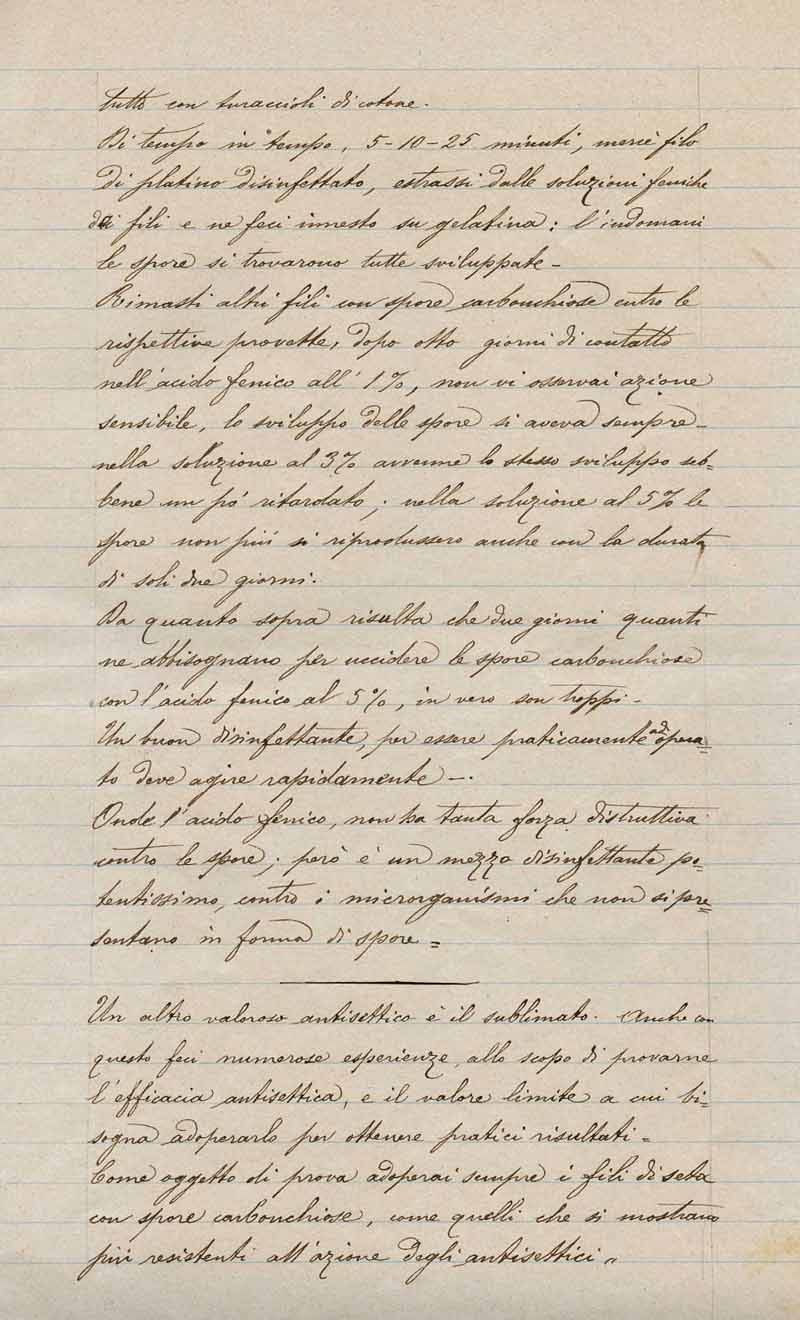 tutto con turaccioli di cotone.
Di tempo in tempo, 5-10-25 minuti, mercè filo
di platino disinfettato, estrassi dalle soluzioni feniche
dei fili e ne feci innesto su gelatina: l'indomani
le spore si trovarono tutte sviluppate -
Rimasti altri fili con spore carbonchiose entro le
rispettive provette, dopo otto giorni di contatto
nell'acido fenico all' 1%, non vi osservai azione
sensibile, lo sviluppo delle spore si aveva sempre -
nella soluzione al 3% avvenne lo stesso sviluppo seb=
bene un pó ritardato; nella soluzione al 5% le
spore non piú si riprodussero anche con la durata
di soli due giorni.
Da quanto sopra risulta che due giorni quanti
ne abbisognano per uccidere le spore carbonchiose
con l'acido fenico al 5%, in vero son troppi -
Un buon disinfettante, per essere praticamente adopera=
to deve agire rapidamente -.
Onde l'acido fenico, non ha tanta forza distruttiva
contro le spore; però è un mezzo disinfettante po=
tentissimo, contro i microrganismi che non si pre=
sentano in forma di spore =
Un altro valoroso antisettico è il sublimato. Anche con
questo feci numerose esperienze, allo scopo di provarne
l'efficacia antisettica, e il valore limite a cui bi=
sogna adoperarlo per ottenere pratici risultati =
Come oggetto di prova adoperai sempre i fili di seta
con spore carbonchiose, come quelli che si mostrano
più resistenti all'azione degli antisettici „